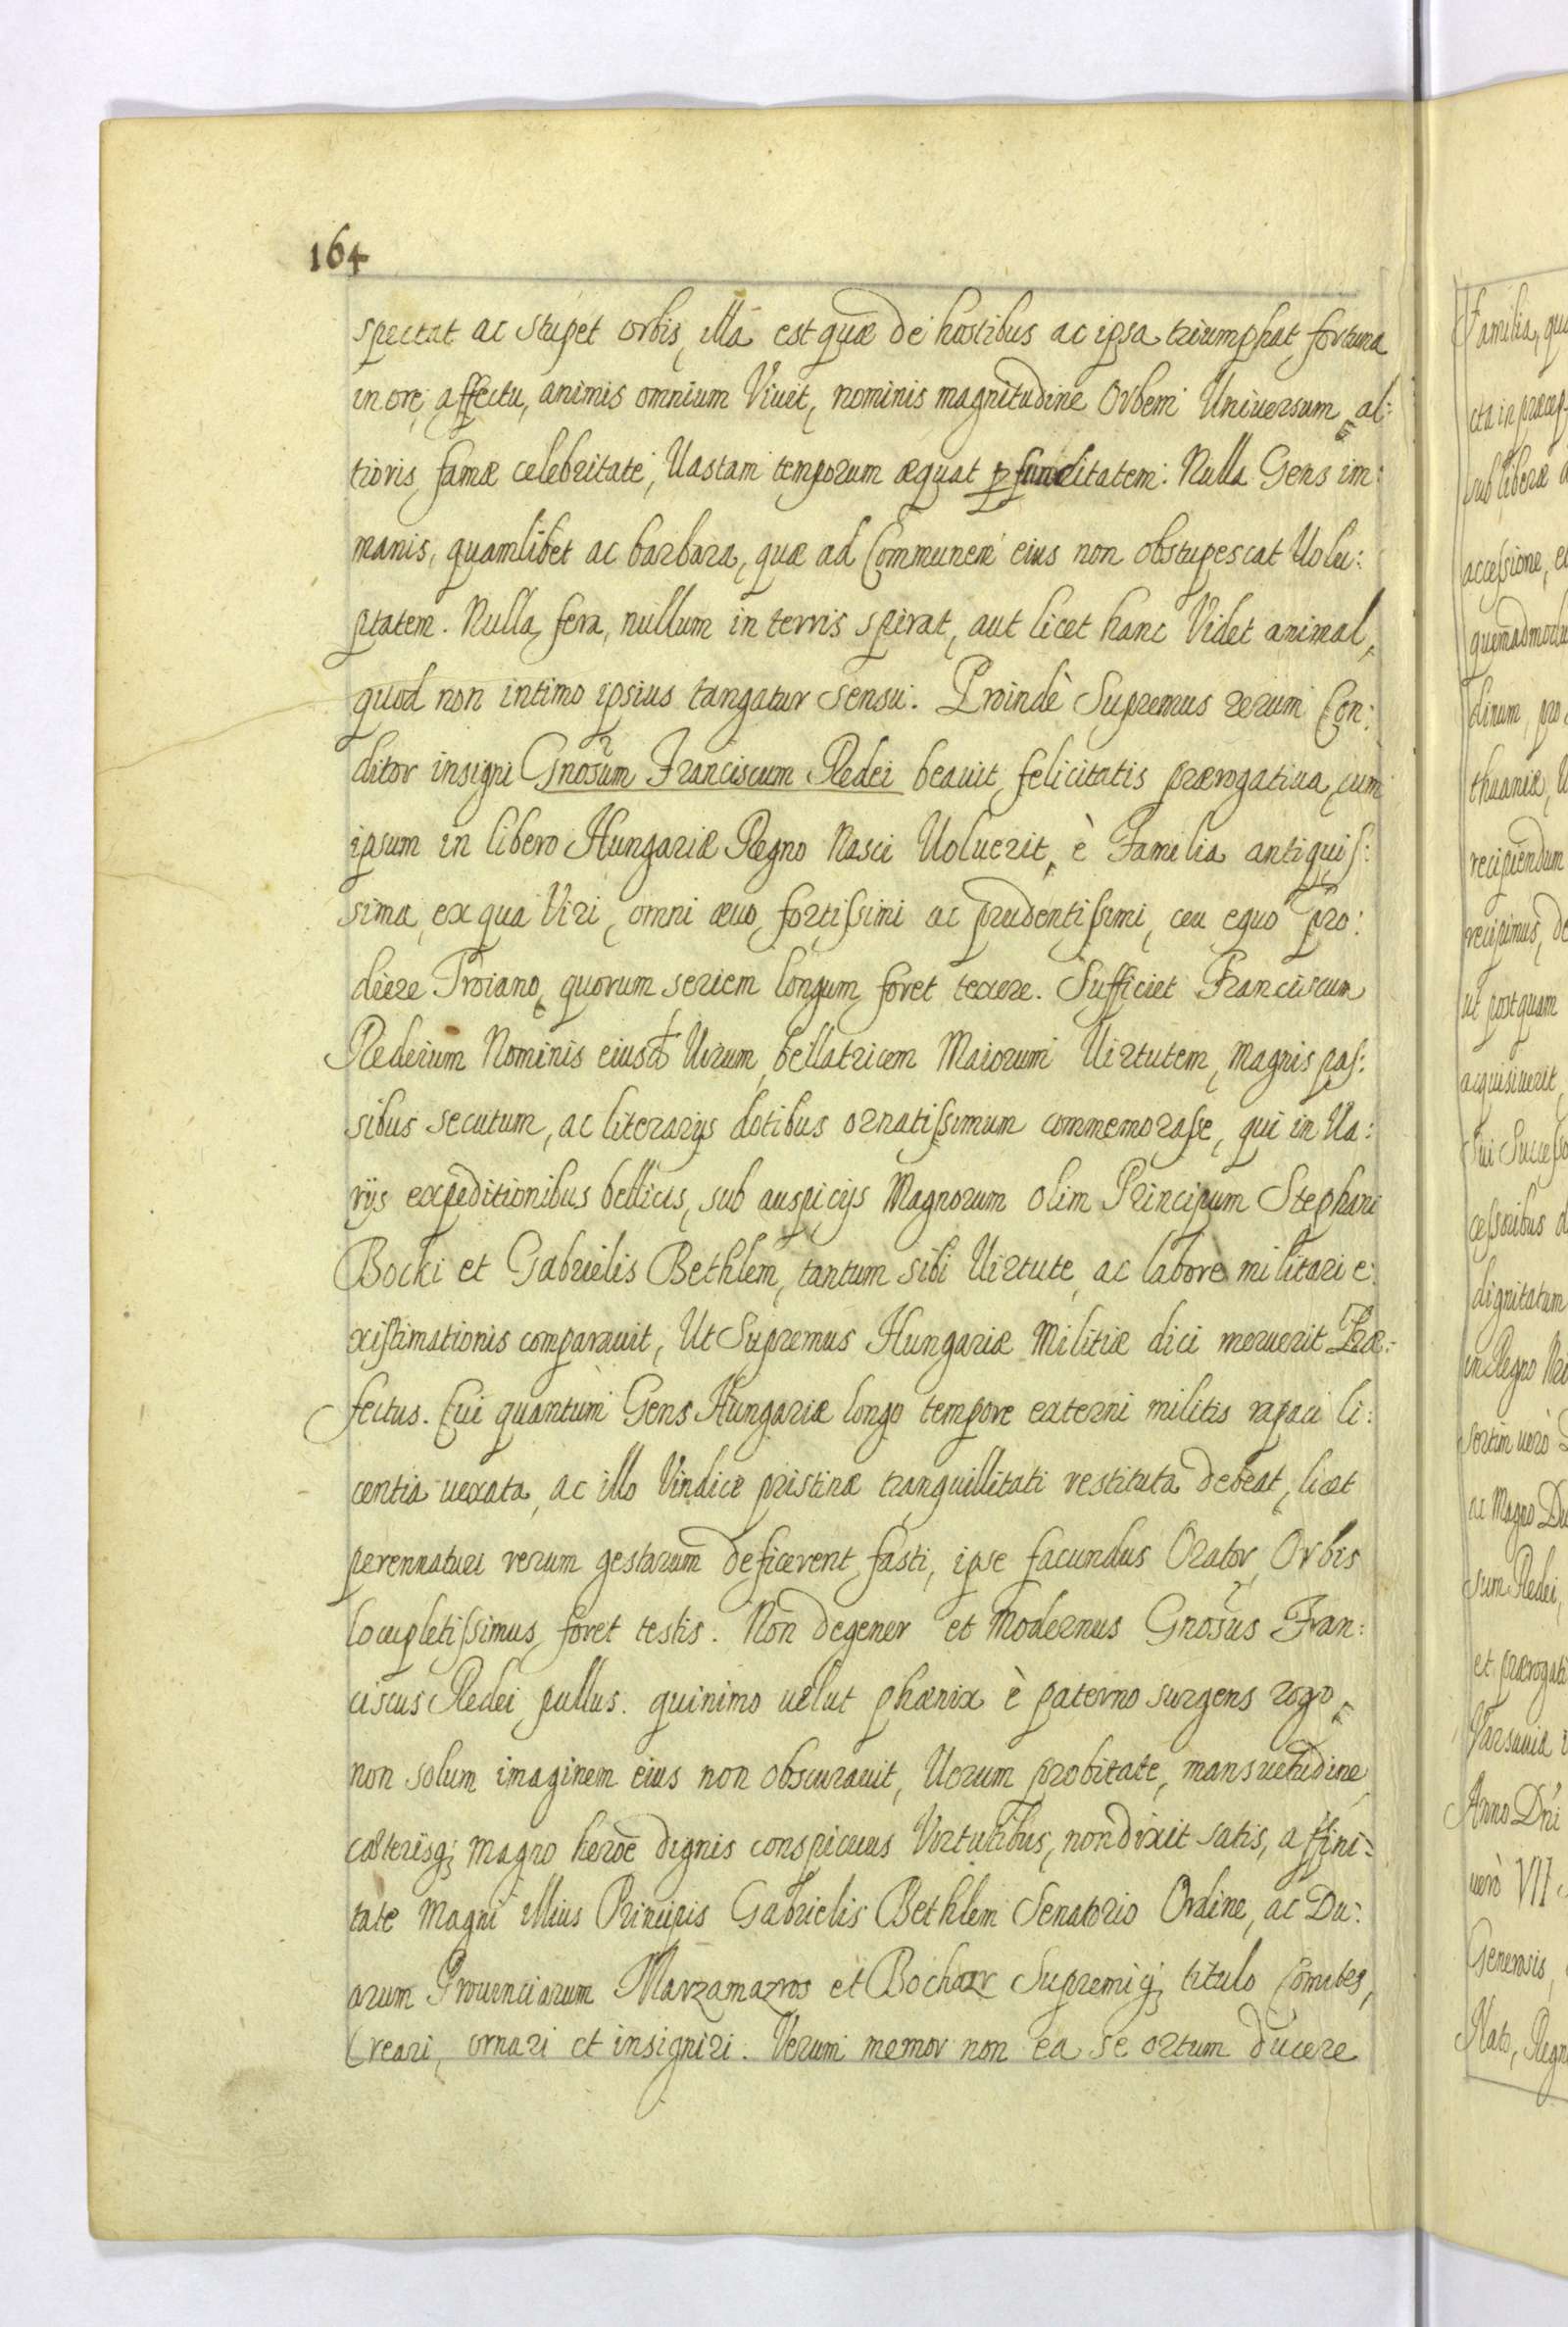 164
spectat ac stupet orbis, illa est quæ de hostibus ac ipsa triumphat fortuna
in ore, affectu, animis omnium Viuit, nominis magnitudine Orbem Uniuersum, al:
tioris famæ celebritate, Uastam temporum æquat pfunditatem: Nulla Gens im:
manis, quamlibet ac barbara, quæ ad Communem eius non obstupescat Uolu:
ptatem. Nulla fera, nullum in terris spirat, aut licet hanc Videt animal,
quod non intimo ipsius tangatur sensu. Proindè Supremus rerum Con:
ditor insigni Gnosum Franciscum Redei beauit felicitatis prærogatiua, cum
ipsum in libero Hungariæ Regno Nasci Uoluerit, è Familia antiquis:
sima, ex qua Viri, omni æuo fortissimi ac prudentissimi, ceu equo pro:
diere Troiano, quorum seriem longum foret texere. Sufficiet Franciscum
Rederium Nominis eiusd Uirum, bellatricem Maiorum Uirtutem, magnis pas:
sibus secutum, ac literarijs dotibus ornatissimum commemorasse, qui in Ua:
rijs expeditionibus bellicis, sub auspicijs Magnorum olim Principum Stephani
Bocki et Gabrielis Bethlem, tantum sibi Uirtute, ac labore militari e:
xistimationis comparauit, Ut Supremus Hungariæ Militiæ dici meruerit Præ:
fectus. Cui quantum Gens Hungariæ longo tempore externi militis rapaci li:
centia uexata, ac illo Vindice pristinæ tranquillitati restituta debeat, licet
perennaturi rerum gestarum deficerent fasti, ipse facundus Orator, Orbis
locupletissimus foret testis. Non degener et Modernus Gnosus Fran:
ciscus Redei pullus. quinimo uelut phænix è paterno surgens rogo,
non solum imaginem eius non obscurauit, Uerum probitate, mansuetudine,
cæterisq; magno heroe dignis conspicuus Virtutibus, non dixit satis, affini:
tate Magni illius Principis Gabrielis Bethlem Senatorio Ordine, ac Du:
arum Prouinciarum Marzamazros et Bocharr Supremiq; titulo Comites,
Creari, ornari et insigniri. Verum memor non ea se ortum ducere
Familia, qua
cta in præcep
sub libera
accessione, e
quemadmodu
dinum, pro
thuaniæ,
recipiendum
recipimus, de
ut postquam
acquisiuerit,
sui Successo
cessoribus
dignitatum
in Regno
uerò
ac Magno Du
sum Redei,
et prærogati
Varsauiæ
Anno Dni
uerò VII
Genensis,
Nato, Regn